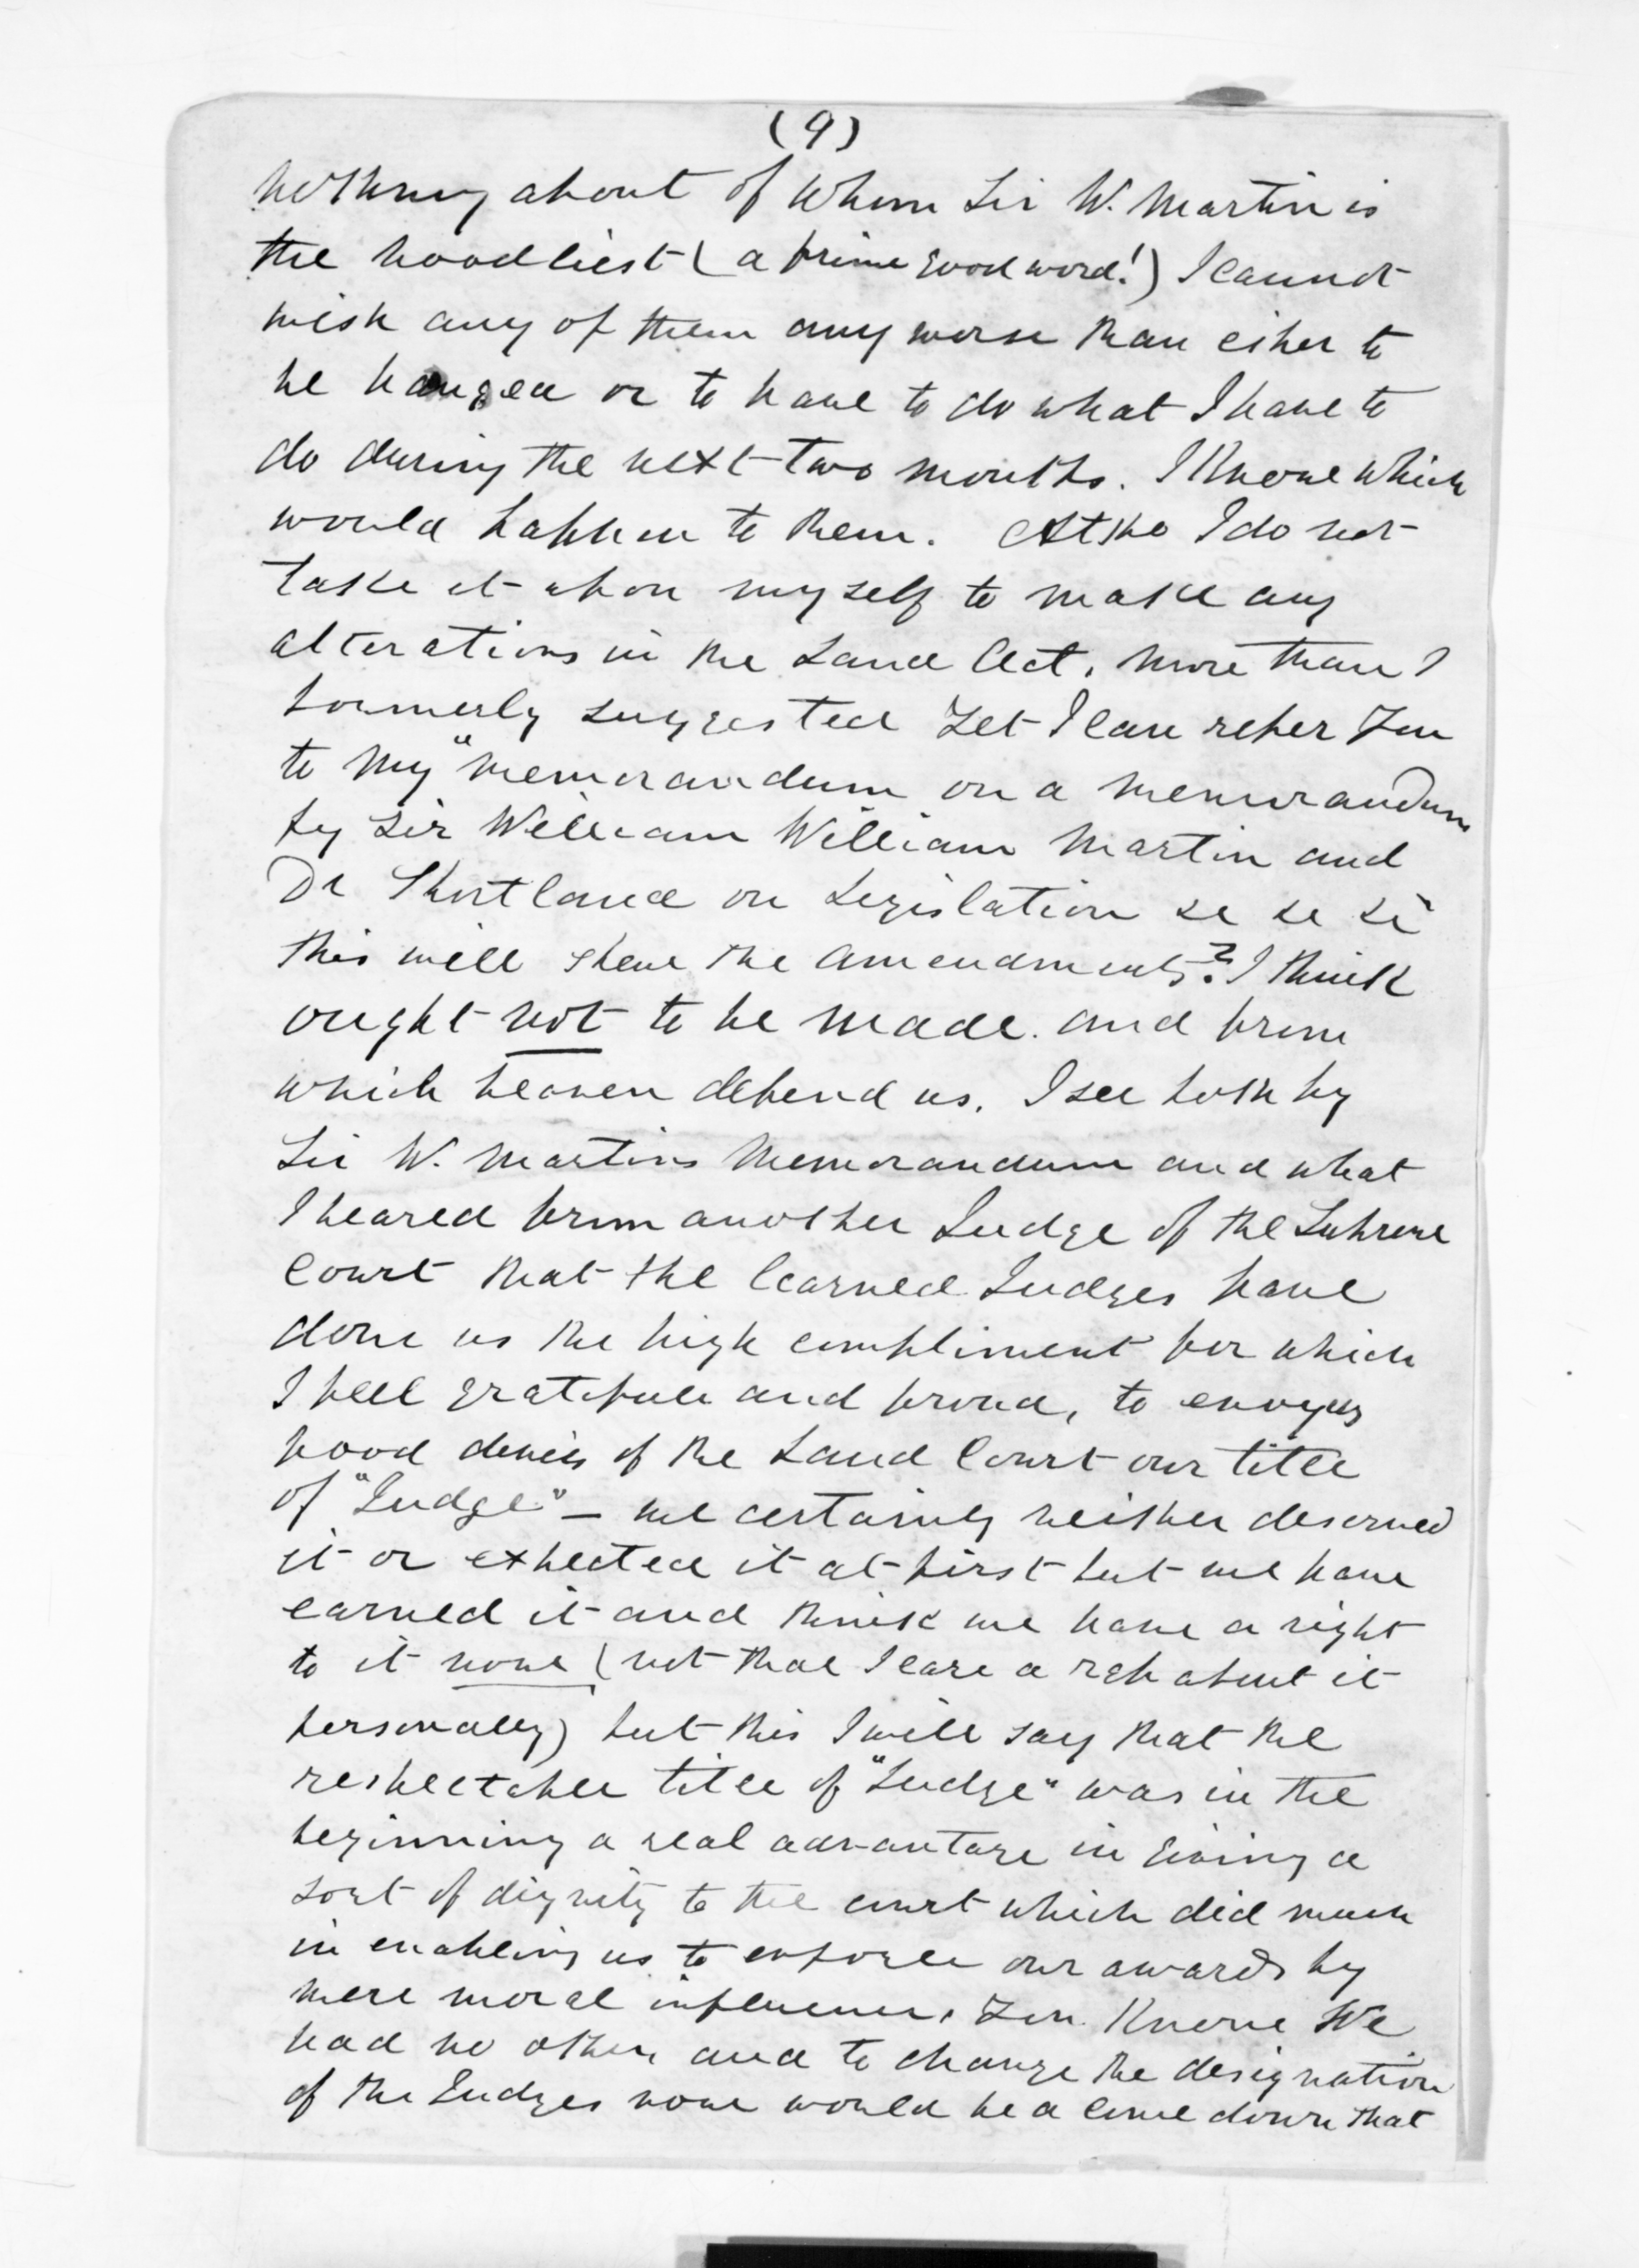 (9)
nothing about of whom Sir W. Martin is
the noodliest (a prime good word!) I cannot
wish any of them any worse than either to
be hanged or to have to do what I have to
do during the next two months. I know which
would happen to them. Altho I do not
take it upon myself to make any
alterations in the Land Act, more than I
formerly suggested yet I can refer you
to my "memorandum on a memorandum
by Sir William William Martin and
Dr Shortland on Legislation &c &c &c"
this will shew the amendments? I think
ought not to be made. and from
which heaven defend us. I see both by
Sir W. Martins Memorandum and what
I heared from another Judge of the Supreme
Court that the learned Judges have
done us the high compliment for which
I feel grateful and proud, to envy us
poor devils of the Land Court our title
of "Judge" – we certainly neither deserved
it or expected it at first but we have
earned it and think we have a right
to it now (not that I care a rap about it
personally) but this I will say that the
respectable title of "Judge" was in the
beginning a real advantage in giving a
sort of dignity to the court which did much
in enabling us to enforce our awards by
mere moral influence, You Know We
had no other, and to change the designation
of the Judges now would be a come down that